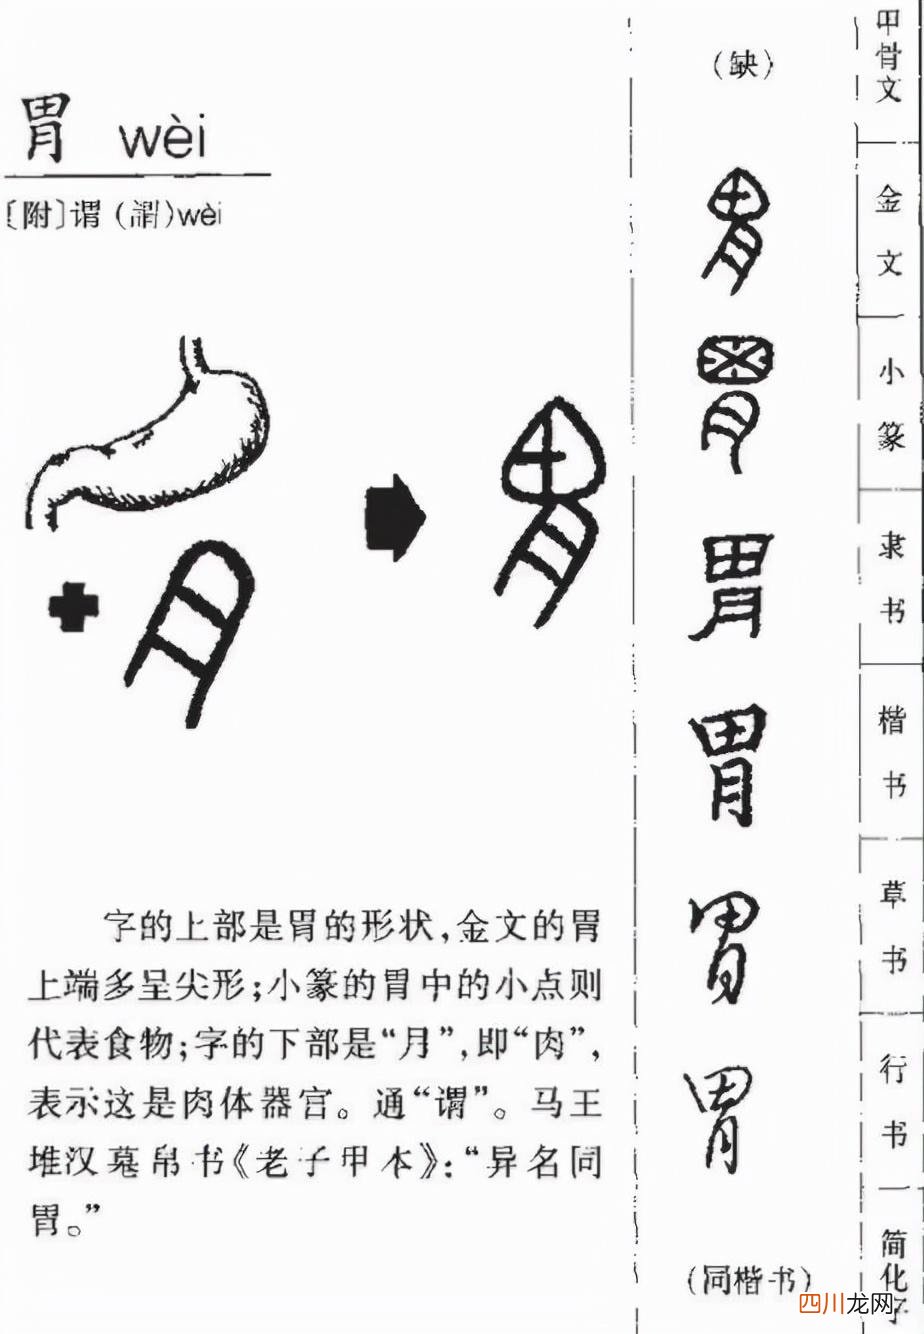 胃 wèi
〔附〕谓（謂）wèi
字的上部是胃的形状，金文的胃
上端多呈尖形；小篆的胃中的小点则
代表食物；字的下部是“月”，即“肉”，
表示这是肉体器官。通“谓”。马王
堆汉墓帛书《老子甲本》：“异名同
胃。”
（缺）
胃
胃
胃
胃
胃
胃
（同楷书）
甲骨文
金文
小篆
隶书
楷书
草书
行书
简化字
四川龙网